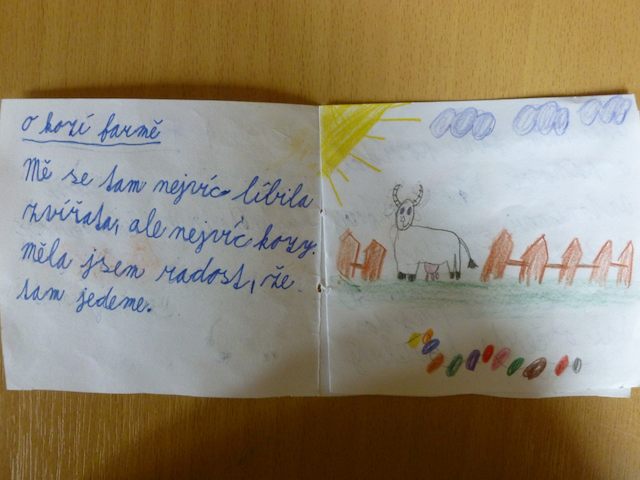 o kozí farmě
Mě se tam nejvíc líbila
zvířata, ale nejvíc kozy.
měla jsem radost, že
tam jedeme.